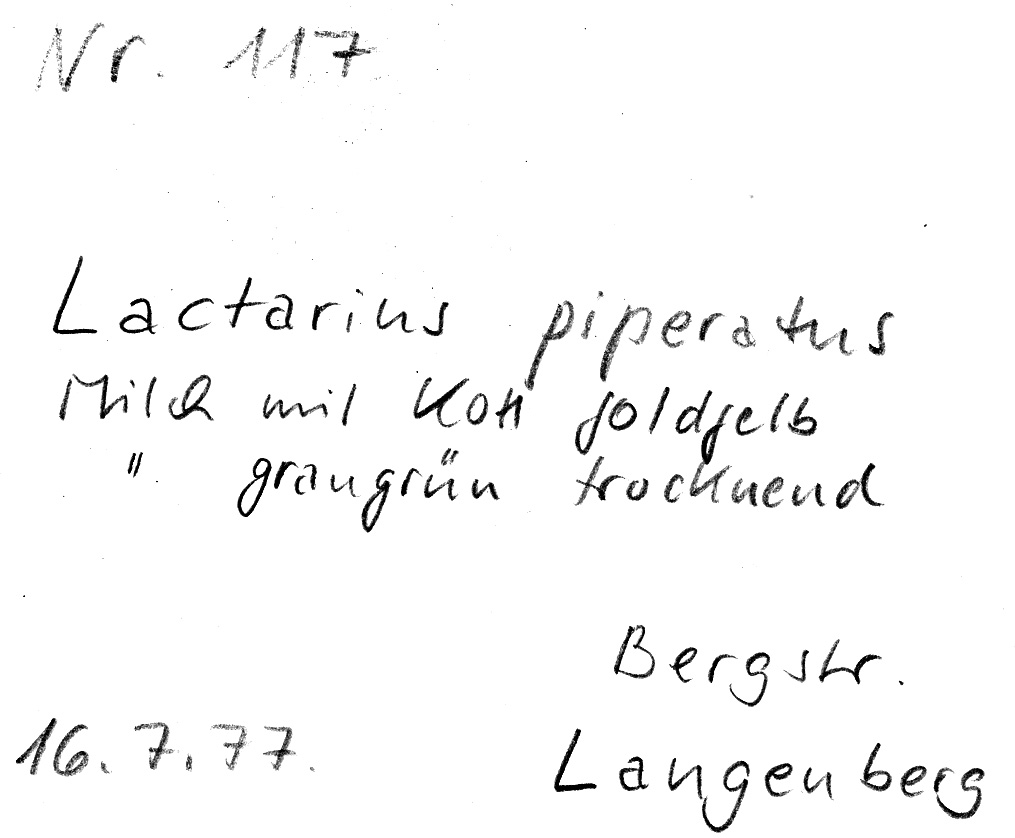 Nr. 117
Lactarius piperatus
Milch mit KOH goldgelb
" graugrün trocknend
Bergstr.
16.7.77. Langenberg